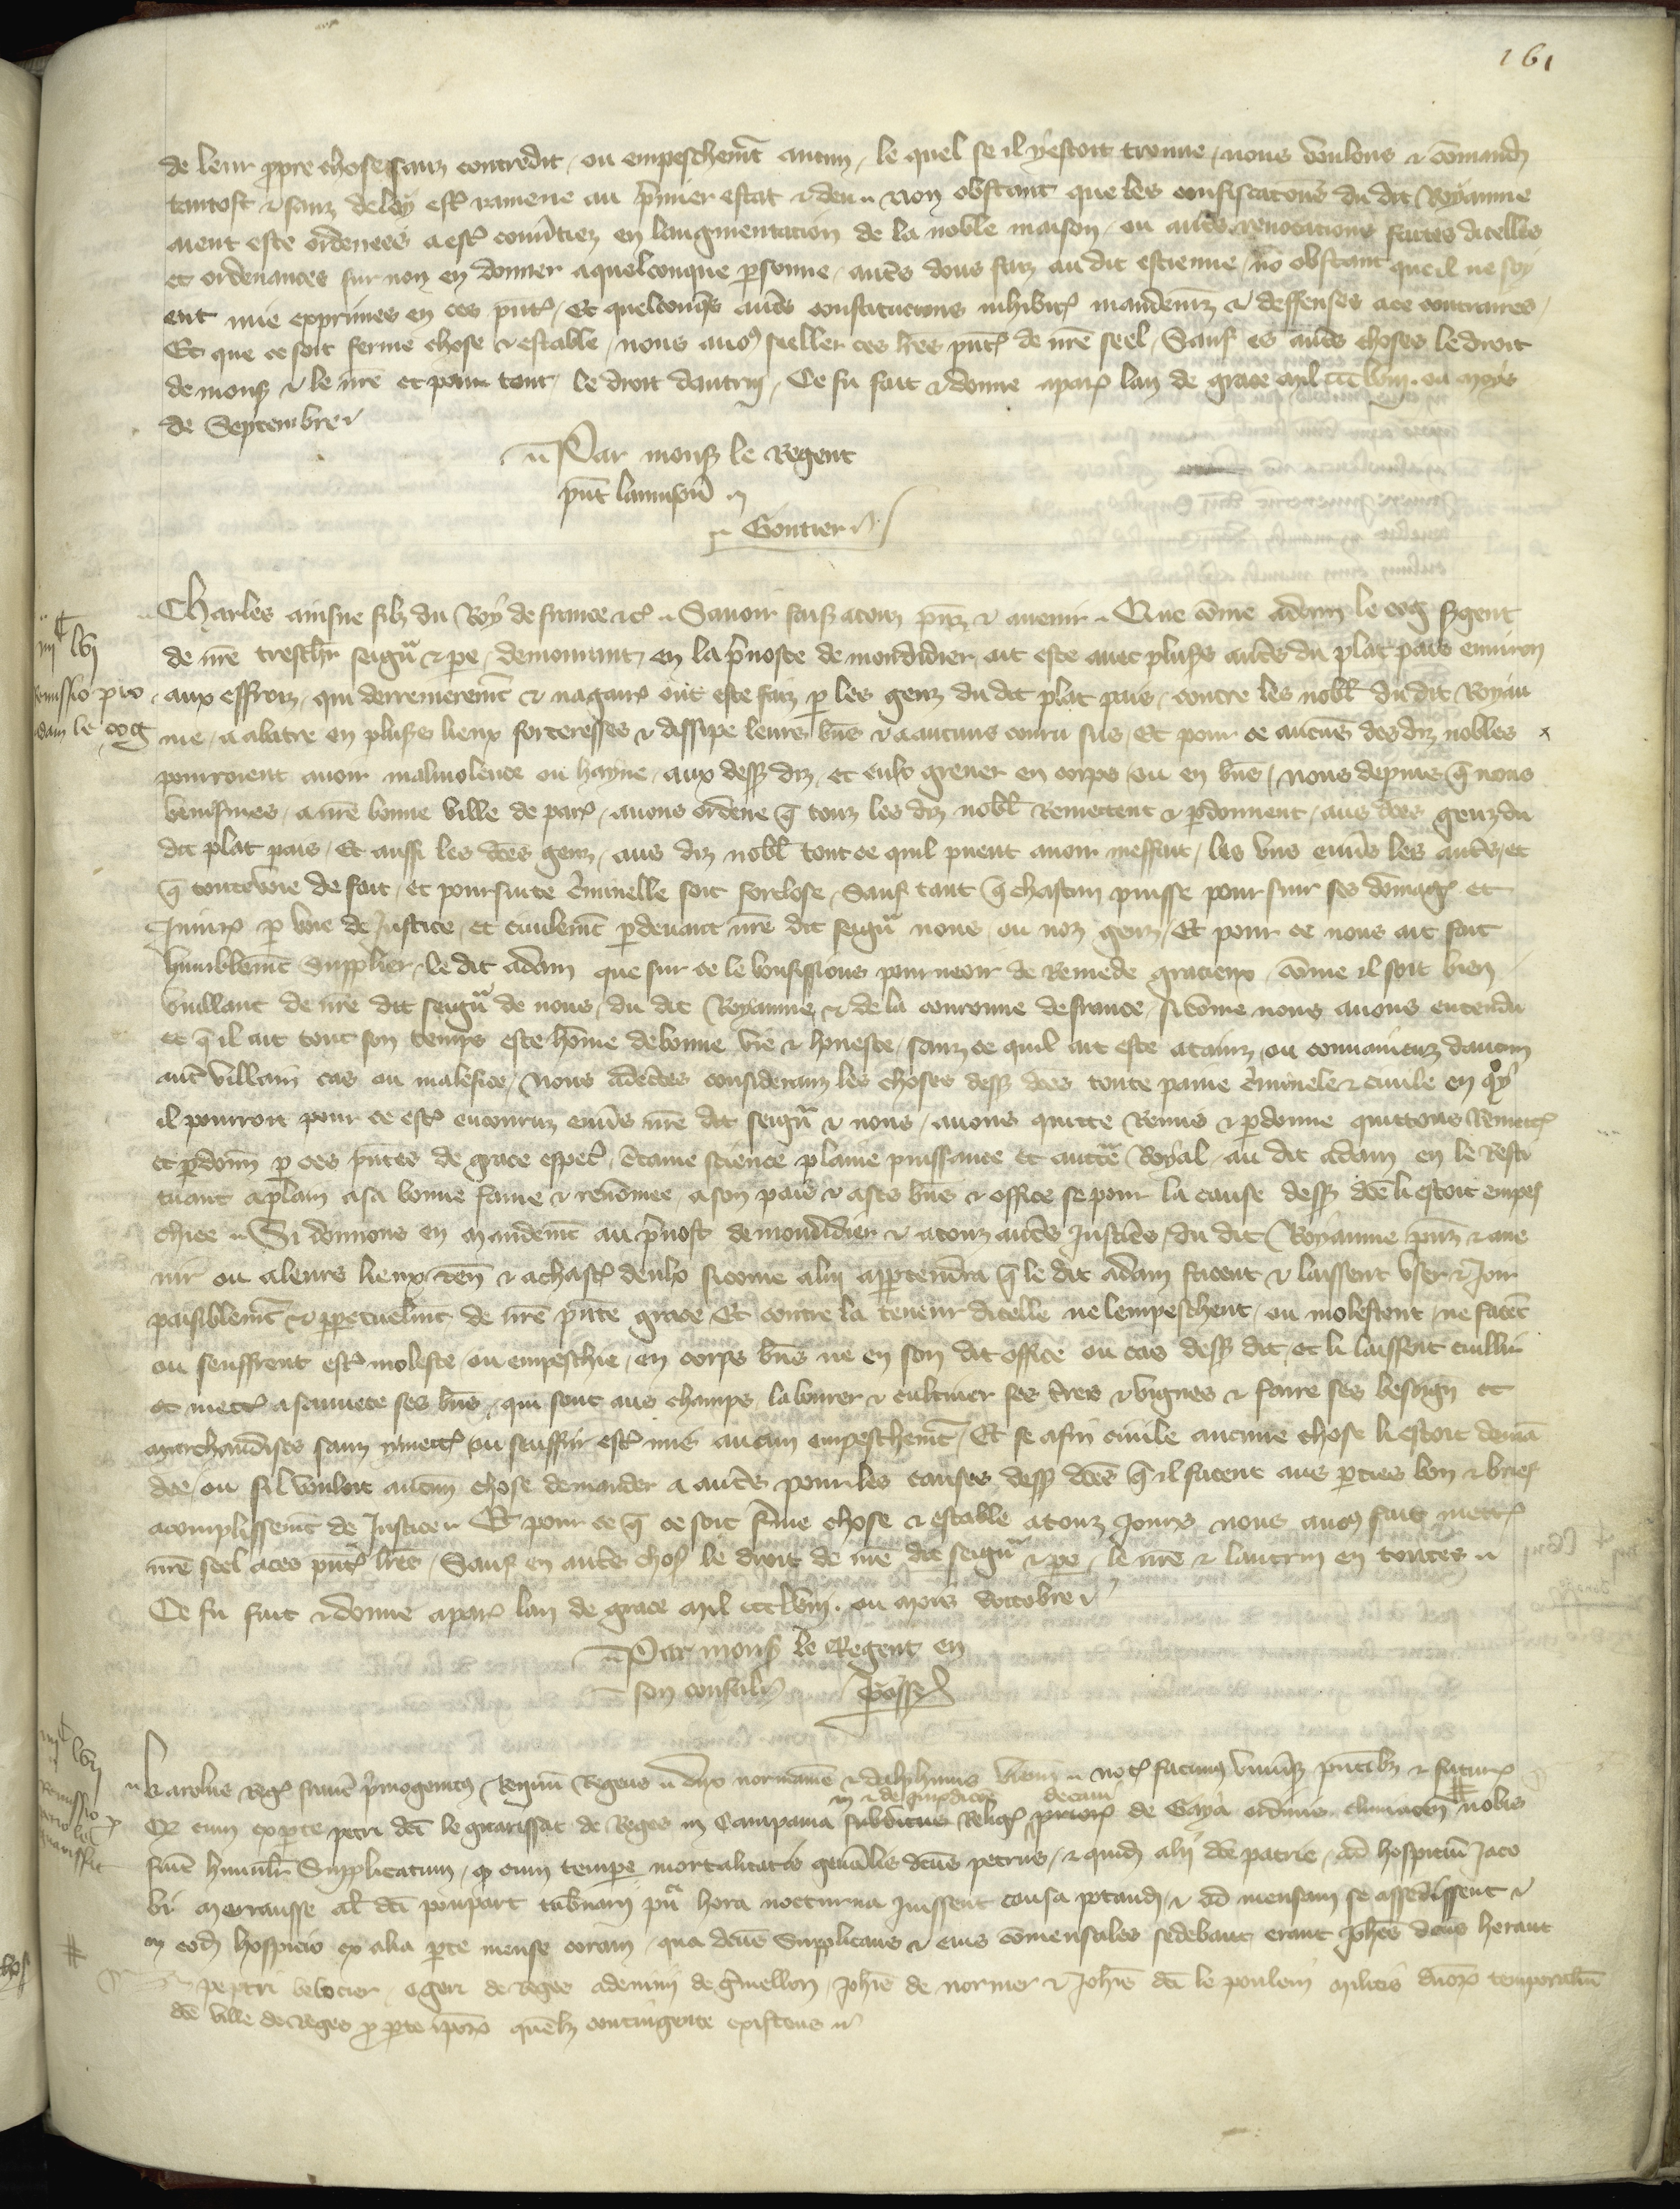 161
de leur ppre chose sanz contredit, ou empeschemt aucun, le quel se il y estoit trouue, nous voulons & comand
tantost & sanz delay estre ramene au pmier estat & deu. Non obstant que les confiscations du dit Royaume
aient este ordenees a estre conuties en laugmentacion de la noble maison, ou autres reuocations faites dicelles
et ordenances sur non en donner a quelconque psonne, autres dons faiz au dit estienne, no obstant que il ne soy
ent mie exprimes en ces pntes, Et quelconqs autres constitucions inhibit mandemz & deffenses a ce contraires,
Et que ce soit ferme chose & estable, nous auos fait seller ces lres pntes de nre seel, Sauf es autres choses le droit
de mons & le nre et pour tout le droit dautruy, Ce fu fait & donne a paris lan de grace mil ccc lviij. ou moys
de Septembre
Par mons le Regent
pnt
Gontier
Charles ainsne filz du Roy de france &c Sauoir faiss a touz pnz & auenir Que come adam le coq sgent
de nre treschr seigur & pe, demourant en la puoste de mondidier, ait este auec plusrs autres du plat pais enuiron
aux effroiz, qui derrenieremt & nagaires ont este faiz p les genz du dit plat pais, contre les nobl du dit Royau
me, a abatre en plusrs lieux forteresses & dissipe leurs bns & a aucuns couru sus, Et pour ce aucuns des diz nobles
pourroient auoir maliuolence ou hayne aux dess diz, et eulx greuer en corps ou en bns, nous depuis q nous
venismes, a nre bonne ville de paris, auons ordene q touz les diz nobl Remettent & pdonnent, aus dces genz du
dit plat pais, Et aussi les dces genz, aus diz nobl tout ce quil pueent auoir meffait, les vns enuers les autres, et
q toute voie de fait, et poursuite criminelle soit forclose, Sauf tant q chascun puisse pour suir ses domages et
Iniures p voie de Justice, et ciuilemt pdeuant nre dit seigur nous, ou noz genz, Et pour ce nous ait fait
humblemt Supplier, le dit adam que sur ce le vousissions pourueoir de Remede gracieux, come il soit bien
vuillant de nre dit seigur de nous, du dit Royaume, & de la couronne de france, si come nous auons entendu
et q il ait tout son temps este home de bonne vie & honeste, sanz ce quil ait este ataint, ou conuaincuz daucun
autre villain cas ou malefice, Nous adcertes considerans les choses dess dces toute paine criminele & ciuile en qoy
il pourroit pour ce estre encouruz enuers nre dit seigur & nous, auons quitte Remis & pdonne quittons Remett
et pdonn p ces pntes de grace especl, ctaine science plaine puissance et auctte Royal, au dit adam en le Resti
tuant a plain a sa bonne fame & renomee, a son pais & a ses bns & office se pour la cause dess dce li estoit empes
chiee Si donnons en mandemt au puost de mondidier & a touz autres Justiciers, du dit Royaume pnz & aue
nir ou a leurs lieux ten & a chascun deulx sicome a luy apptendra q le dit adam facent & laissent vser & Joir
paisiblemt & ppetuelmt de nre pnte grace Et contre la teneur dicelle ne lempeschent, ou molestent, ne facent
ou seuffrent estre moleste, ou empeschie, en corps bns ne en son dit office ou cas dess dit, et li laissent cuillir
et mettre a sauuete ses bns, qui sont aus champs, labourer & cultiuer ses tres & vignes & faire ses besoign et
marchandises sanz y mettre ou seuffrir estre mis aucun empeschemt, Et se afin ciuile aucune chose li estoit deman
dee, ou sil vouloit aucun chose demander a autres pour les causes dess dces q il facent aus pties bon & brief
acomplissemt de Justice Et pour ce q ce soit ferme chose & estable a touz jours nous auos fait mettre
nre seel a ces pntes lres, Sauf en autres chos le droit de nre dit seigur & pe, le nre & lautruy en toutes
Ce fu fait & donne a paris lan de grace mil ccc lviij. ou mois doctobre
Par mons le Regent en
son conseil
iiijc lvj
Remissio pro
adam le coq
Karolus Regis francie pmogenitus Regnum Regens dux normanie & dalphinus vien notum facimus vniusis pntibz & futuris
Qz cum ex pte petri dci le guarissat de Reges in Campania subditus Religs prioris de Gaya ordinis cluniacen nobis
in & de
decani
fuit humilr Supplicatum, qz cum tempe mortalitatis genalis dcus petrus, & quid alij dce patrie, ad hospitiu Jaco
bi morausse al dci poupart tabnarij hora nocturna Juissent causa potandi, & ad mensam se assedissent &
in eod hospicio ex alia pte mense coram, qua dcus Supplicans & eius comensales sedebant erant Johes dcus heraut
petri belocier, ogeri de Reges ademini de gmellon, Johis de normer & Johis dci le poulein militis dnorz temporaliu
dce ville de Reges p pte ipsorz quelibz contingente existens
iiijc lvij
Remissio p